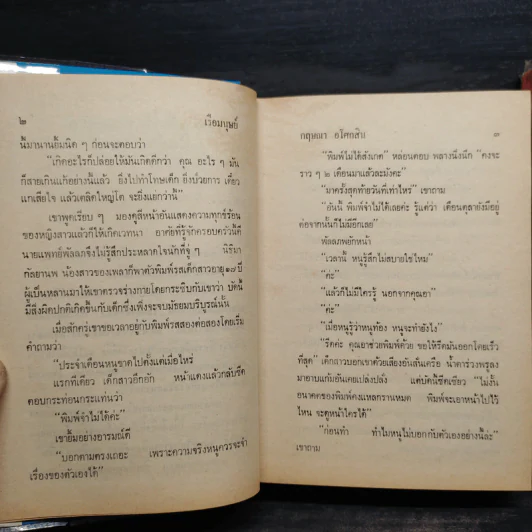 ๒ เรือมนุษย์
นี้มานานอึ้มนิด ๆ ก่อนจะตอบว่า
“เกิดอะไรก็ปล่อยให้มันเกิดดีกว่า คุณ อะไร ๆ มัน
ก็สายเกินแก้อย่างนี้แล้ว ยิ่งไปทำโทษเด็ก ยิ่งป่วยการ เดี๋ยว
แกเสียใจ แล้วเตลิดใหญ่โต จะยิ่งแย่กว่านี้”
เขาพูดเรียบ ๆ มองดูสีหน้าอันแสดงความทุกข์ร้อน
ของหญิงสาวแล้วก็ให้เกิดเวทนา อาศัยที่รู้จักครอบครัวนี้ดี
นายแพทย์พัลลภจึงไม่รู้สึกประหลาดใจนักที่จู่ ๆ นิธิมา
กัลยานพ น้องสาวของเพลาก็พาตัวพิมพ์รสเด็กสาวอายุ ๑๗ ปี
ผู้เป็นหลานมาให้เขาตรวจร่างกายโดยกระซิบกับเขาว่า บัดนี้
มีสิ่งผิดปกติเกิดขึ้นกับเด็กซึ่งเพิ่งจะจบมัธยมบริบูรณ์นั้น
เมื่อสักครู่เขาขอเวลาอยู่กับพิมพ์รสสองต่อสองโดยเริ่ม
คำถามว่า
“ประจำเดือนหนูขาดไปตั้งแต่เมื่อไหร่
แรกทีเดียว เด็กสาวอึกอัก หน้าแดงแล้วกลับซีด
ตอบกระท่อนกระแท่นว่า
“พิมพ์จำไม่ได้ค่ะ”
เขายิ้มอย่างอารมณ์ดี
“บอกตามตรงเถอะ เพราะความจริงหนูควรจะจำ
เรื่องของตัวเองได้”
กฤษณา อโศกสิน ๓
“พิมพ์ไม่ได้สังเกต” หล่อนตอบ พลางนิ่งนึก “คงจะ
ราว ๆ ๒ เดือนมาแล้วละมังคะ”
“มาครั้งสุดท้ายวันที่เท่าไหร่” เขาถาม
“อันนี้ พิมพ์จำไม่ได้เลยค่ะ รู้แต่ว่า เดือนตุลายังมีอยู่
ต่อจากนั้นก็ไม่มีอีกเลย”
พัลลภพยักหน้า
“เวลานี้ หนูรู้สึกไม่สบายใช่ไหม”
“ค่ะ”
“แล้วก็ไม่มีใครรู้ นอกจากคุณยา”
“ค่ะ”
“เมื่อหนูรู้ว่าหนูท้อง หนูจะทำยังไง”
“รีดค่ะ คุณอาช่วยพิมพ์ด้วย ขอให้รีดมันออกโดยเร็ว
ที่สุด” เด็กสาวบอกเขาด้วยเสียงอันสั่นเครือ น้ำตาร่วงพรูลง
มาอาบแก้มอันเคยเปล่งปลั่ง แต่บัดนี้ซีดเซียว “ไม่งั้น
อนาคตของพิมพ์คงแหลกรานหมด พิมพ์จะเอาหน้าไปไว้
ไหน จะดูหน้าใครได้”
“ก่อนทำ ทำไมหนูไม่บอกกับตัวเองอย่างนี้ล่ะ”
เขาถาม